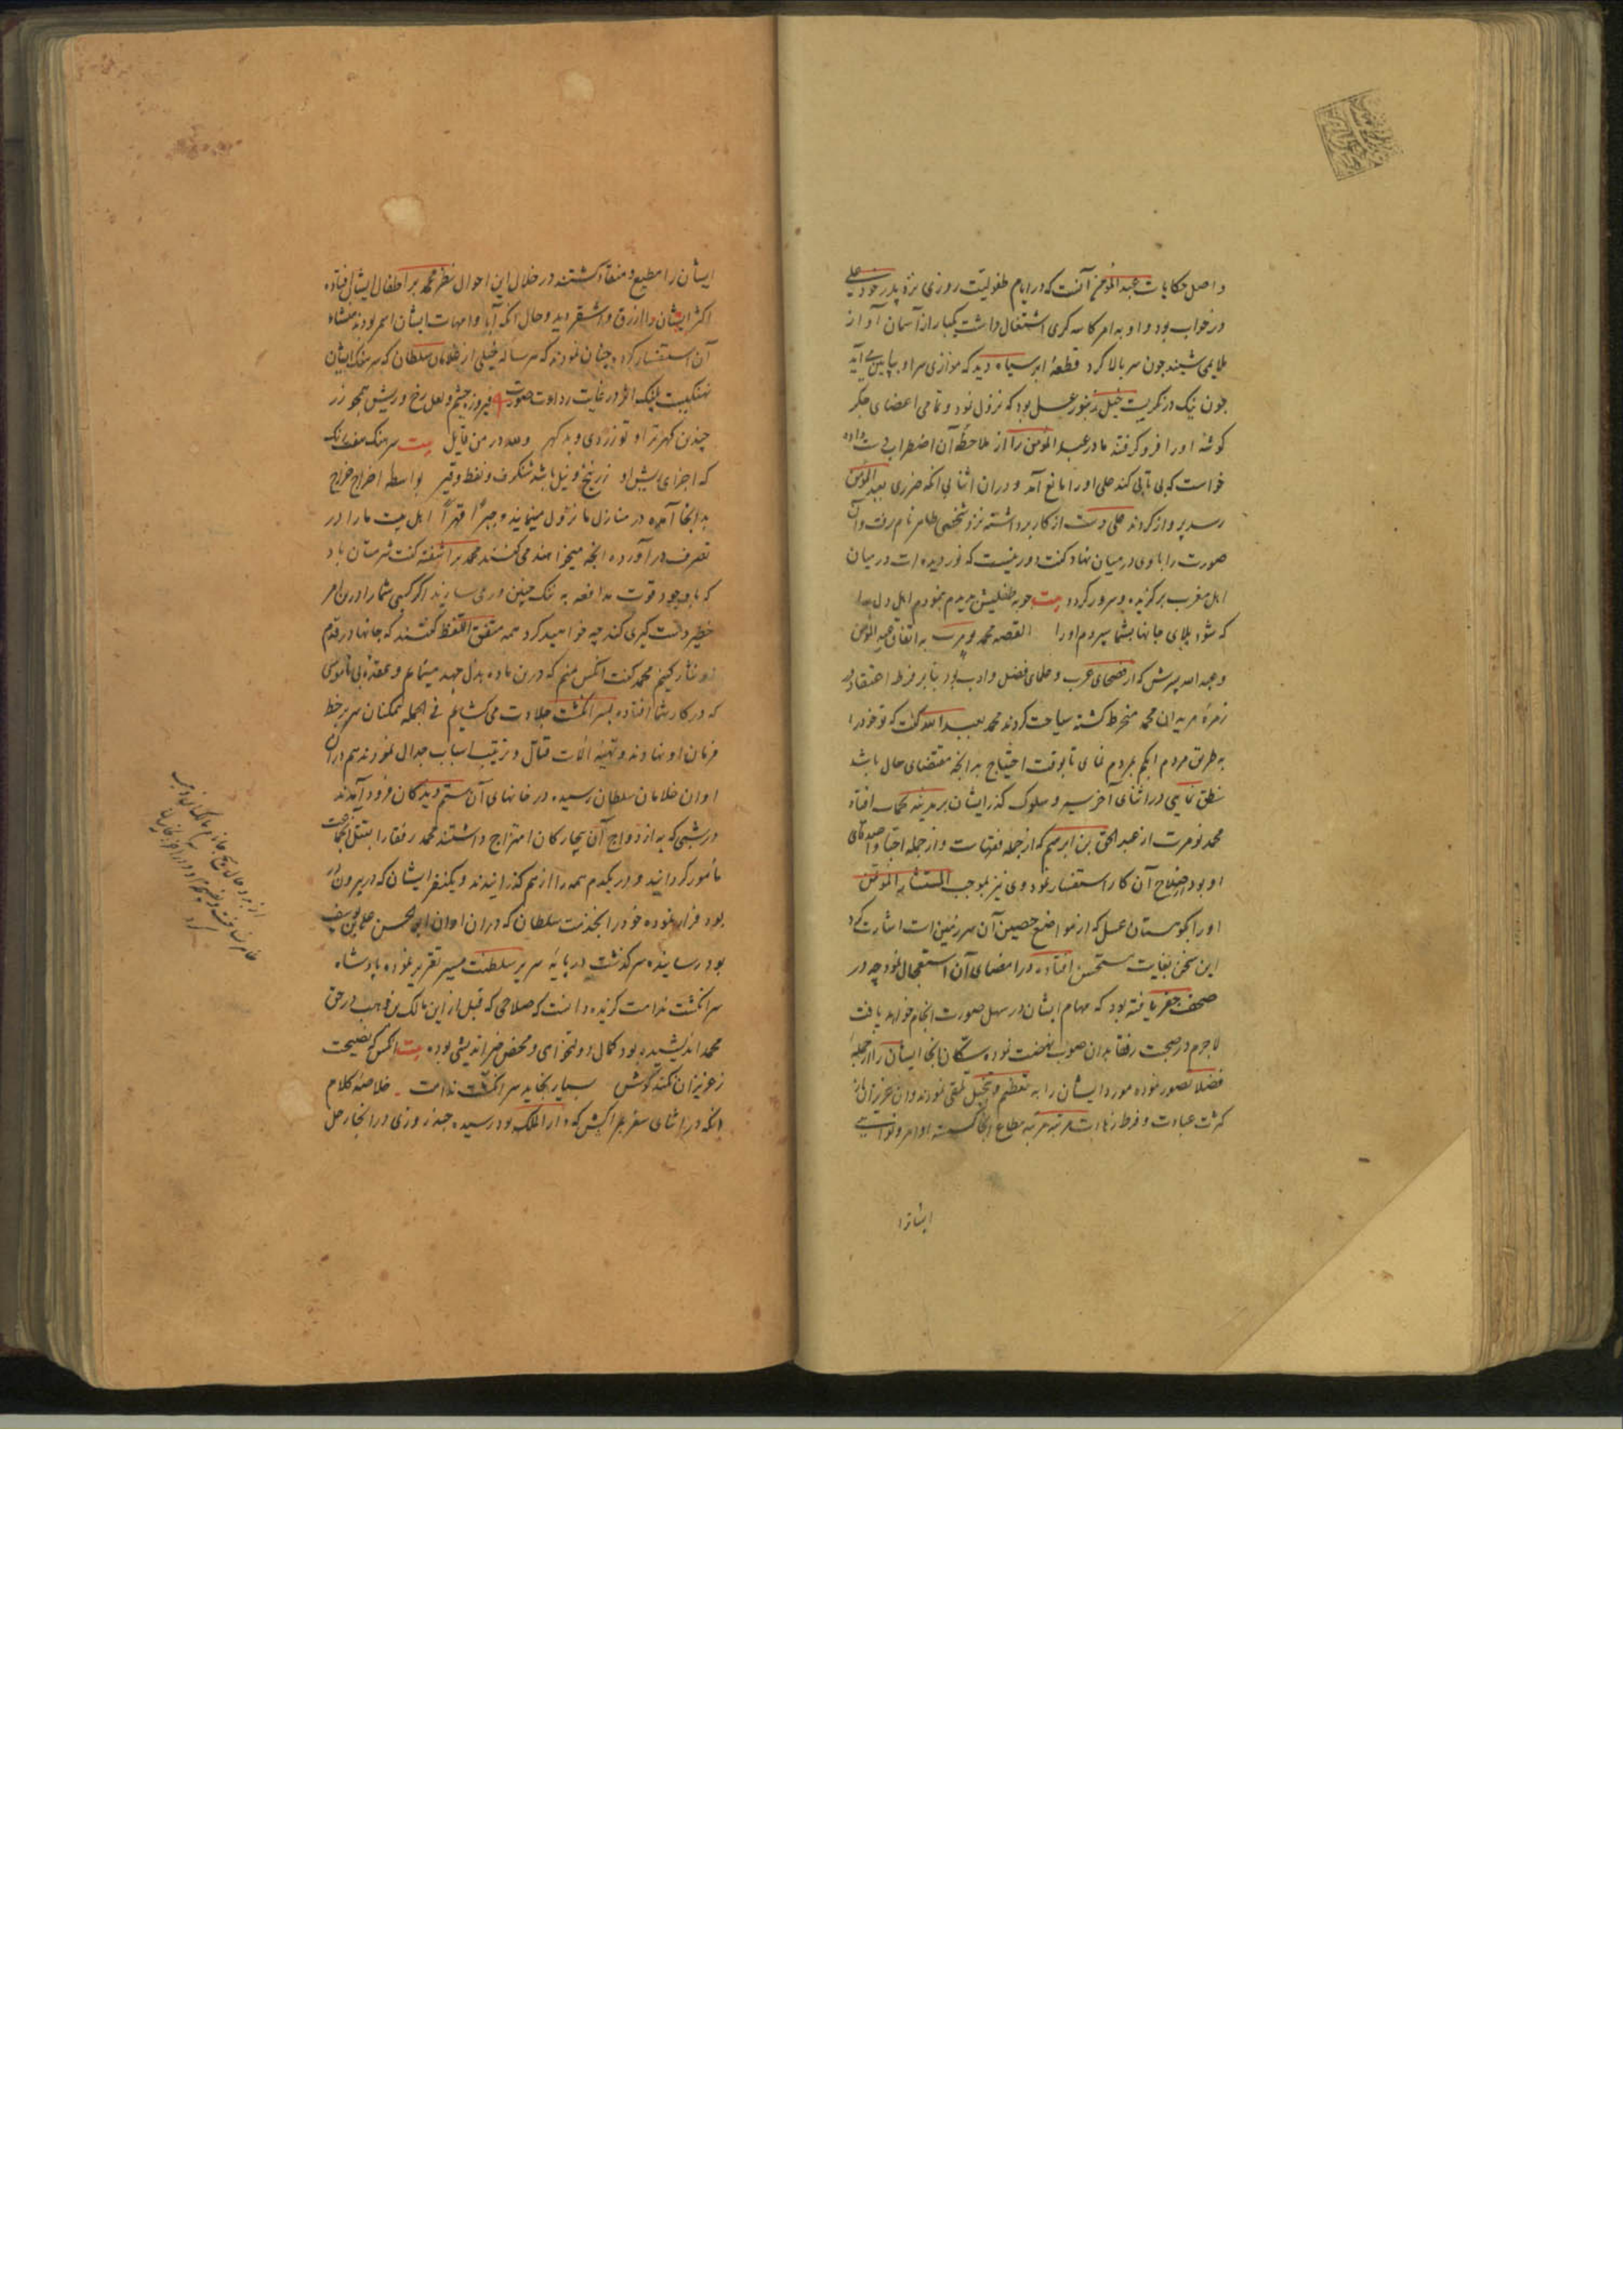 و اصل حکایات عبدالمؤمن آنست که در ایام طفولیت روزی نزد پدر خود علی
در خواب بود و او به امر کاسه گری اشتغال داشت یکبار از آسمان آواز
ملایمی شنید چون سر بالا کرد قطعهٔ ابر سیاه دید که موازی سر او بپایین می آید
چون نیک در نگریست خیل زنبور عسل بود که نزول نمود و تمامی اعضای جگر
گوشه او را فرو گرفتند مادر عبدالمؤمن را از ملاحظهٔ آن اضطراب دست داده
خواست که بی تابی کند علی او را مانع آمد و در آن اثنا بی آنکه ضرری بعبدالمؤمن
رسد پرواز کردند علی دست از کار برداشته نزد شخصی طاهر نام رفت و آن
صورت را با وی در میان نهاد گفت دور نیست که نور دیده ات در میان
اهل مغرب برگزیده و سرور گردد بیت چو به طفلیش بدیدم بنمودم اهل دل را
که شود بلای جانها بشما سپردم او را القصه محمد تومرت به اتفاق عبدالمؤمن
و عبدالله که از فصحای عرب و علمای فضل و ادب بود بنابر فرط اعتقاد در
زمرهٔ مریدان محمد منخرط گشته سیاحت کردند محمد بعبدالله گفت که تو خود را
به طریق مردم ابکم بمردم نمای تا بوقت احتیاج به آنچه مقتضای حال باشد
نطق نمایی در اثنای آخر سیر و سلوک گذر ایشان بر مدینه افتاد
محمد تومرت از عبدالحق بن ابرهیم که از جمله فقهاست و از جمله احبا و اصدقای
او بود صلاح آن کار استفسار نمود وی نیز بموجب المستشار مؤتمن
او را بکوهستان عسل که از مواضع حصین آن سرزمین است اشارت کرد
این سخن بغایت مستحسن افتاده در امضای آن استعجال نمود چه در
صحف جفر یافته بود که مهام ایشان در سهل صورت انجام خواهد یافت
لاجرم در صحبت رفقا بدان صوب نهضت نموده سکان آنجا ایشان را از جمله
فضلا تصور نموده مورد ایشان را به تعظیم و تبجیل تلقی نمودند و آن عزیزان از
کثرت عبادت و فرط زهادت مرتبه مرتبه مطاع آنجا گشته اوامر و نواهی
ایشانرا
ایشان را مطیع و منقاد گشتند در خلال این احوال نظر محمد بر اطفال ایشان افتاده
اکثر ایشان را ازرق و اشقر دید و حال آنکه آبا و امهات ایشان اسمر بودند منشاء
آن استفسار کرد چنان نمودند که هر ساله خیلی از غلامان سلطان که سرهنگ ایشان
نهنگیست پلنگ اثر در غایت رداءت صورت فیروزه چشم و لعل رخ و ریش همچو زر
چندین گهر تر او تو زردی و بد گهر و لله در من قایل بیت سرهنگ هفت رنگ
که اجزای ریش او زرنیخ و نیل باشد شنگرف و نفط و قیر بواسطه اخراج خراج
بدینجا آمده در منازل ما نزول مینمایند و جبراً قهراً اهل بیت ما را در
تصرف در آورده آنچه میخواهند می کنند محمد برآشفته گفت شرمتان باد
که با وجود قوت مدافعه به ننگ چنین در می سازید اگر کسی شما را درین امر
خطیر دستگیری کند چه خواهید کرد همه متفق اللفظ گفتند که جانها در قدم
او نثار کنیم محمد گفت آنکس منم که درین ماده بذل جهد مینمایم و عقده بی ناموسی
که در کار شما افتاده بسر انگشت جلادت می گشایم فی الجمله همگنان سر بر خط
فرمان او نهادند و تهیه آلات قتال و ترتیب اسباب جدال نمودند هم در آن
اوان غلامان سلطان رسیده در خانهای آن ستم دیدگان فرود آمدند
در شبی که به ازدواج آن بیچارگان امتزاج داشتند محمد رفقا را بقتل آنجماعت
مأمور گردانید و در یکدم همه را از هم گذرانیدند و یکنفر ایشان که در بیرون
بود فرار نموده خود را بخدمت سلطان که در آن اوان ابوالحسن علی بن یوسف
بود رسانیده سرگذشت در پایهٔ سریر سلطنت مسیر تقریر نموده پادشاه
سرانگشت ندامت گزیده دانست که صلاحی که قبل از این مالک بن وهب در حق
محمد اندیشیده بود کمال دولتخواهی و محض خیراندیشی بوده بیت آنکس که نصیحت
ز عزیزان نکند گوش بسیار بخاید سرانگشت ندامت خلاصهٔ کلام
آنکه در اثنای سفر بمراکش که دارالملک بود رسیده چند روزی در آنجا رحل